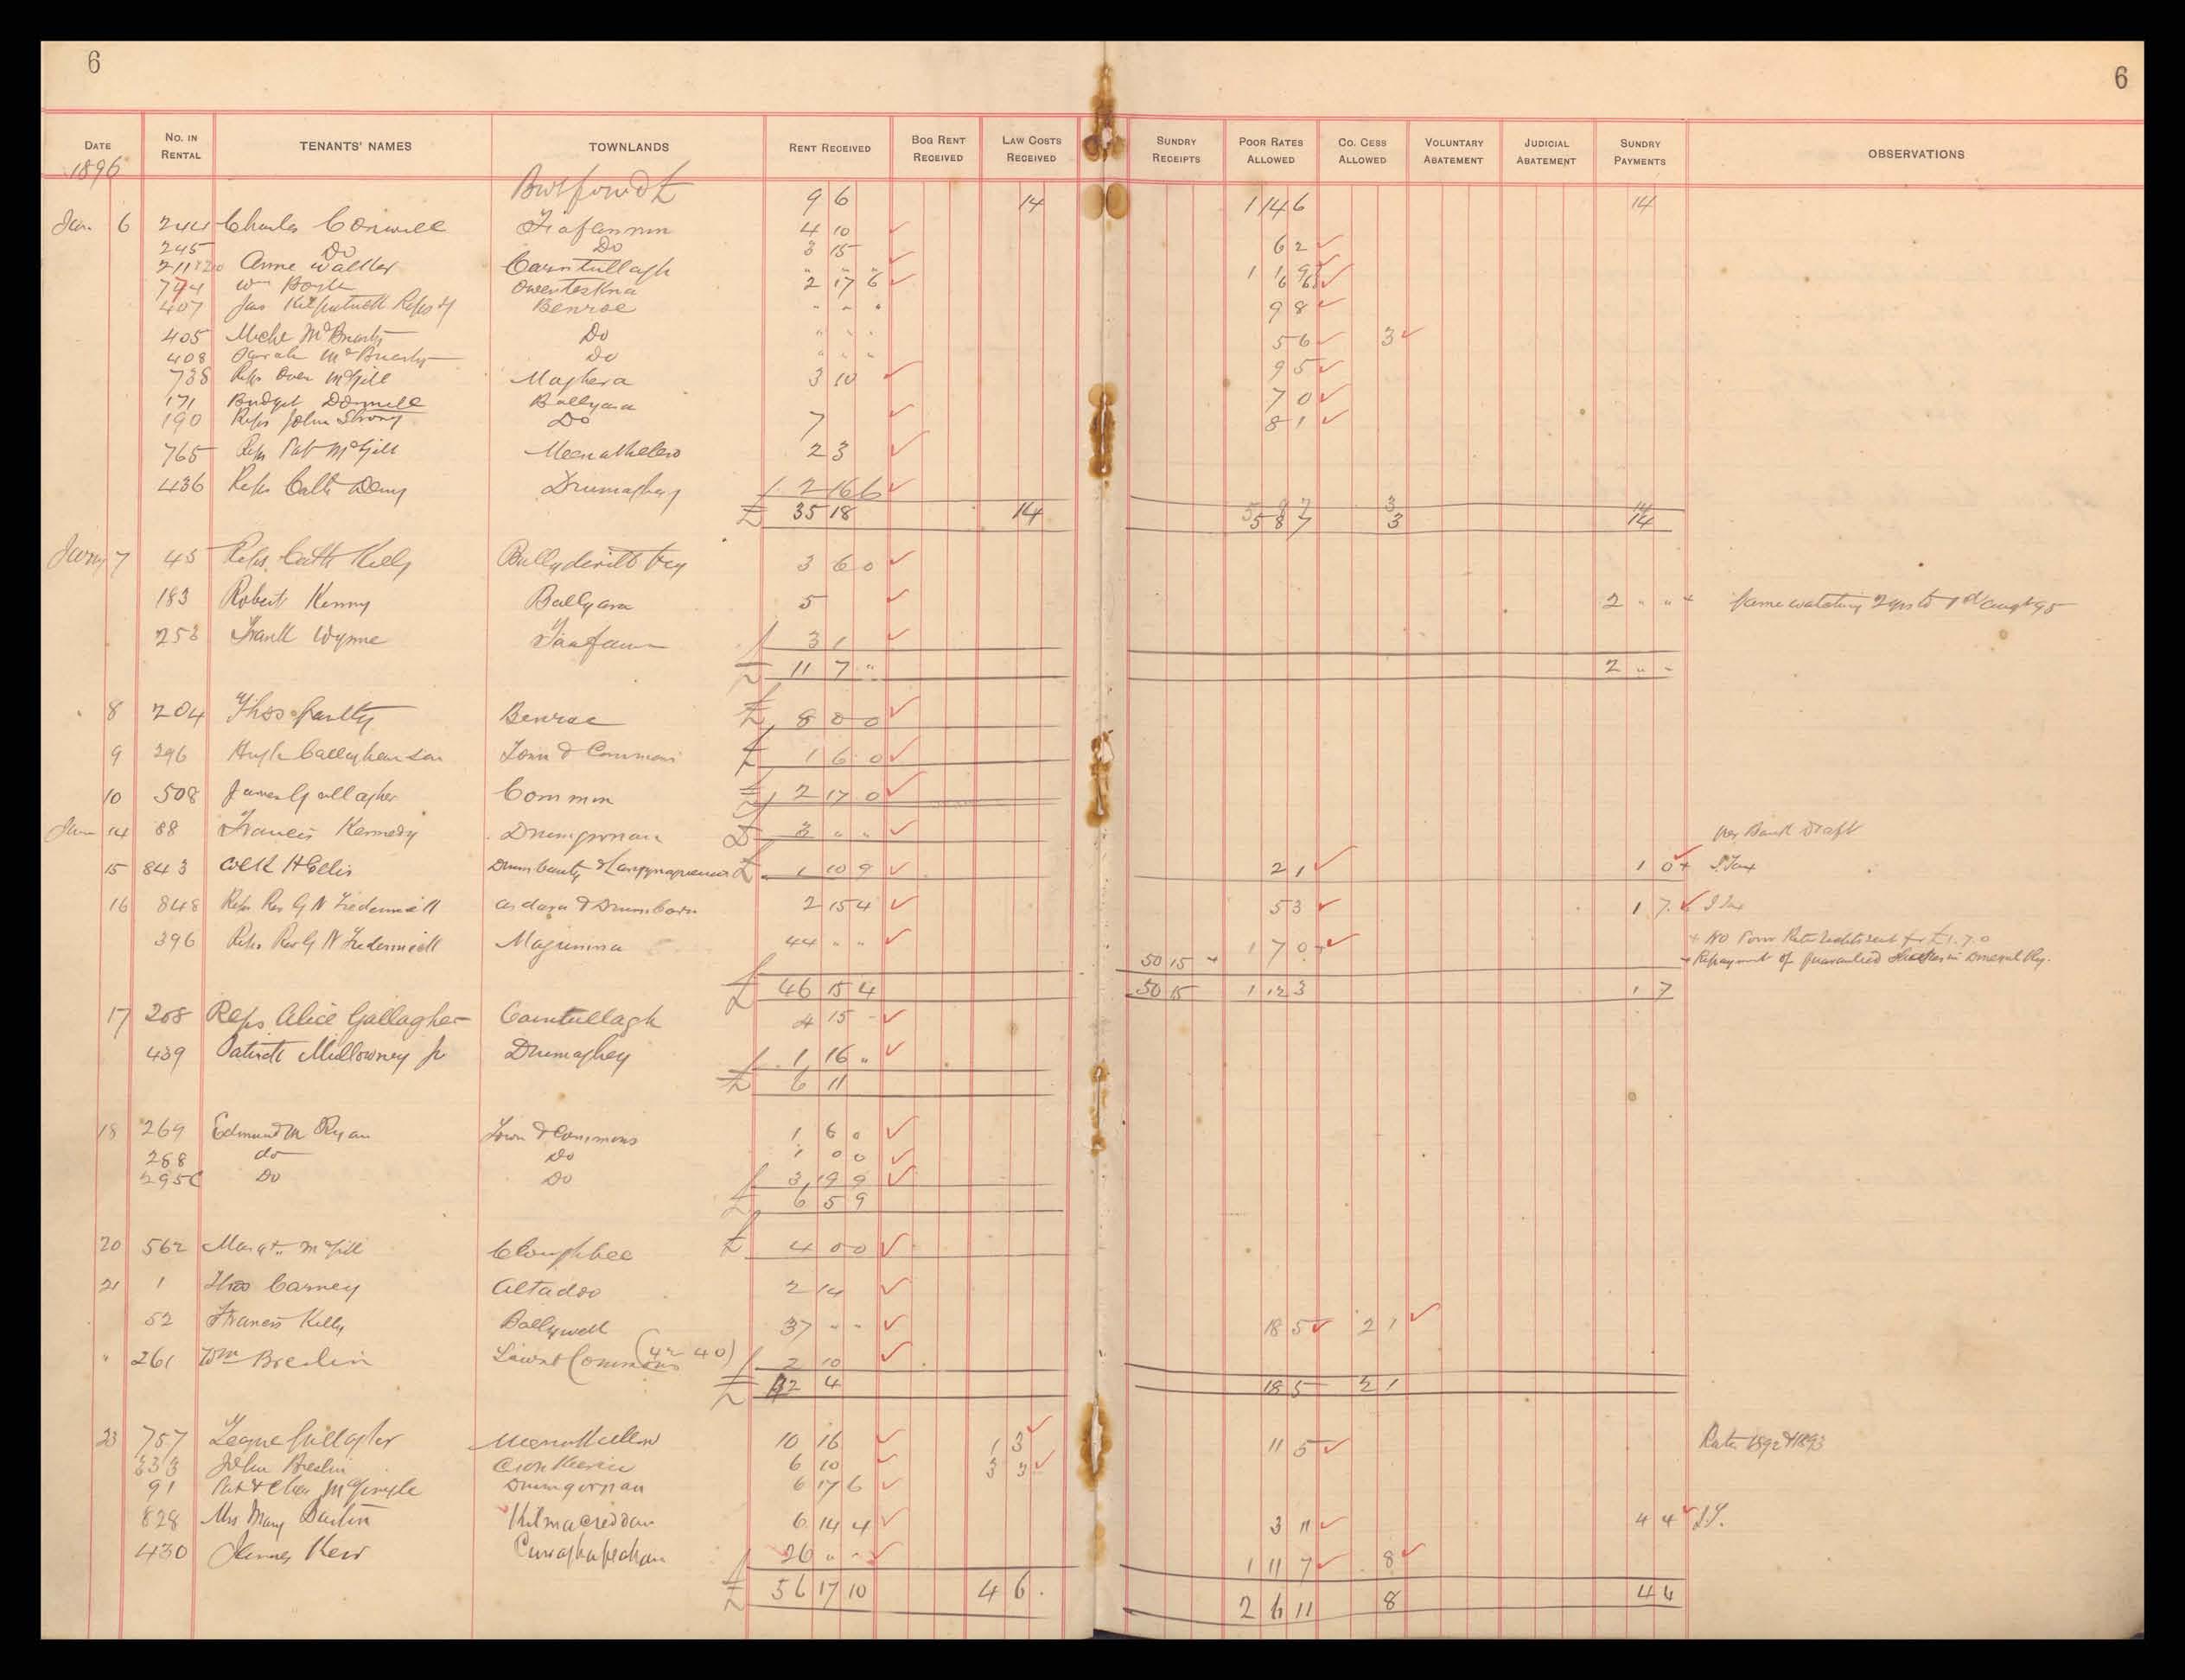 6
6
DATE No. IN RENTAL TENANTS' NAMES TOWNLANDS RENT RECEIVED BOG RENT RECEIVED LAW COSTS RECEIVED SUNDRY RECEIPTS POOR RATES ALLOWED CO. CESS ALLOWED VOLUNTARY ABATEMENT JUDICIAL ABATEMENT SUNDRY PAYMENTS OBSERVATIONS
1896
9 6 14 1 14 6 14
Jan. 6 244 Charles Conwell 4 10
245 Do Do 3 15 6 2
Anne Walker Carntullagh " " " 1 1 9
744 Wm Boyle Owenteskna 2 17 6 6 6
407 Jas Kilpatrick Reps of Benroe " " " 9 8
405 Michl McBrearty Do " " " 5 6 3
408 Sarah McBrearty Do " " " 9 5
738 Reps Owen McGill Maghera 3 10
171 Bridget Donnell Ballyara 7 0
190 Reps John Strong Do 7 8 1
765 Reps Pat McGill 2 3
436 Reps Cath Deny Drumaghey 2 16 6
£ 35 18 14 5 8 7 3 14
Jany 7 45 Reps. Cath Kelly 3 6 0
183 Robert Kenny Ballyara 5 2 " " watching 2 yrs to 1st Augt 95
253 Frank Wynne 3 1
£ 11 7 " 2 " "
8 204 Thos Benroe £ 8 0 0
9 296 Hugh Callaghan Town & Commons £ 1 6 0
10 508 James Gallagher Common £ 2 17 0
Jan 14 88 Francis Kennedy Drumgornan £ 3 " " per Bank Draft
15 843 H Ellis £ 1 10 9 2 1 1 0 I Tax
16 848 Reps Rev G N Tredennick Ardara & Drumbarn 2 15 4 5 3 1 7 I Tax
396 Reps Rev G N Tredennick Magumna 44 " " 50 15 1 7 0 + No Poor Rate for £1.7.0
Repayment of guaranteed
£ 46 15 4 50 15 1 12 3 1 7
17 208 Reps Alice Gallagher Carntullagh 4 15 -
439 Patrick Mullowney Jr Drumaghey 1 16 "
£ 6 11
18 269 Edmund M Ryan Town & Commons 1 6 0
268 do Do 1 0 0
295C Do Do 3 19 9
£ 6 5 9
20 562 Margt. McGill Cloughbee £ 4 0 0
21 1 Thos Carney Altadoo 2 14
52 Francis Kelly Ballywell 37 " " 18 5 2 1
" 261 Wm Breslin Commons 2 10
£ 42 4 18 5 2 1
23 757 Teague Gallagher 10 16 1 3 11 5 Rates 1892 & 1893
333 John Breslin Cronkeerin 6 10 3 3
91 Pat & Chas McGinyle Drumgornan 6 17 6
828 Mrs Mary Kilmacreddan 6 14 4 3 11 4 4 I T.
430 James Kerr 26 " " 1 11 7 8
£ 56 17 10 4 6 2 6 11 8 4 4